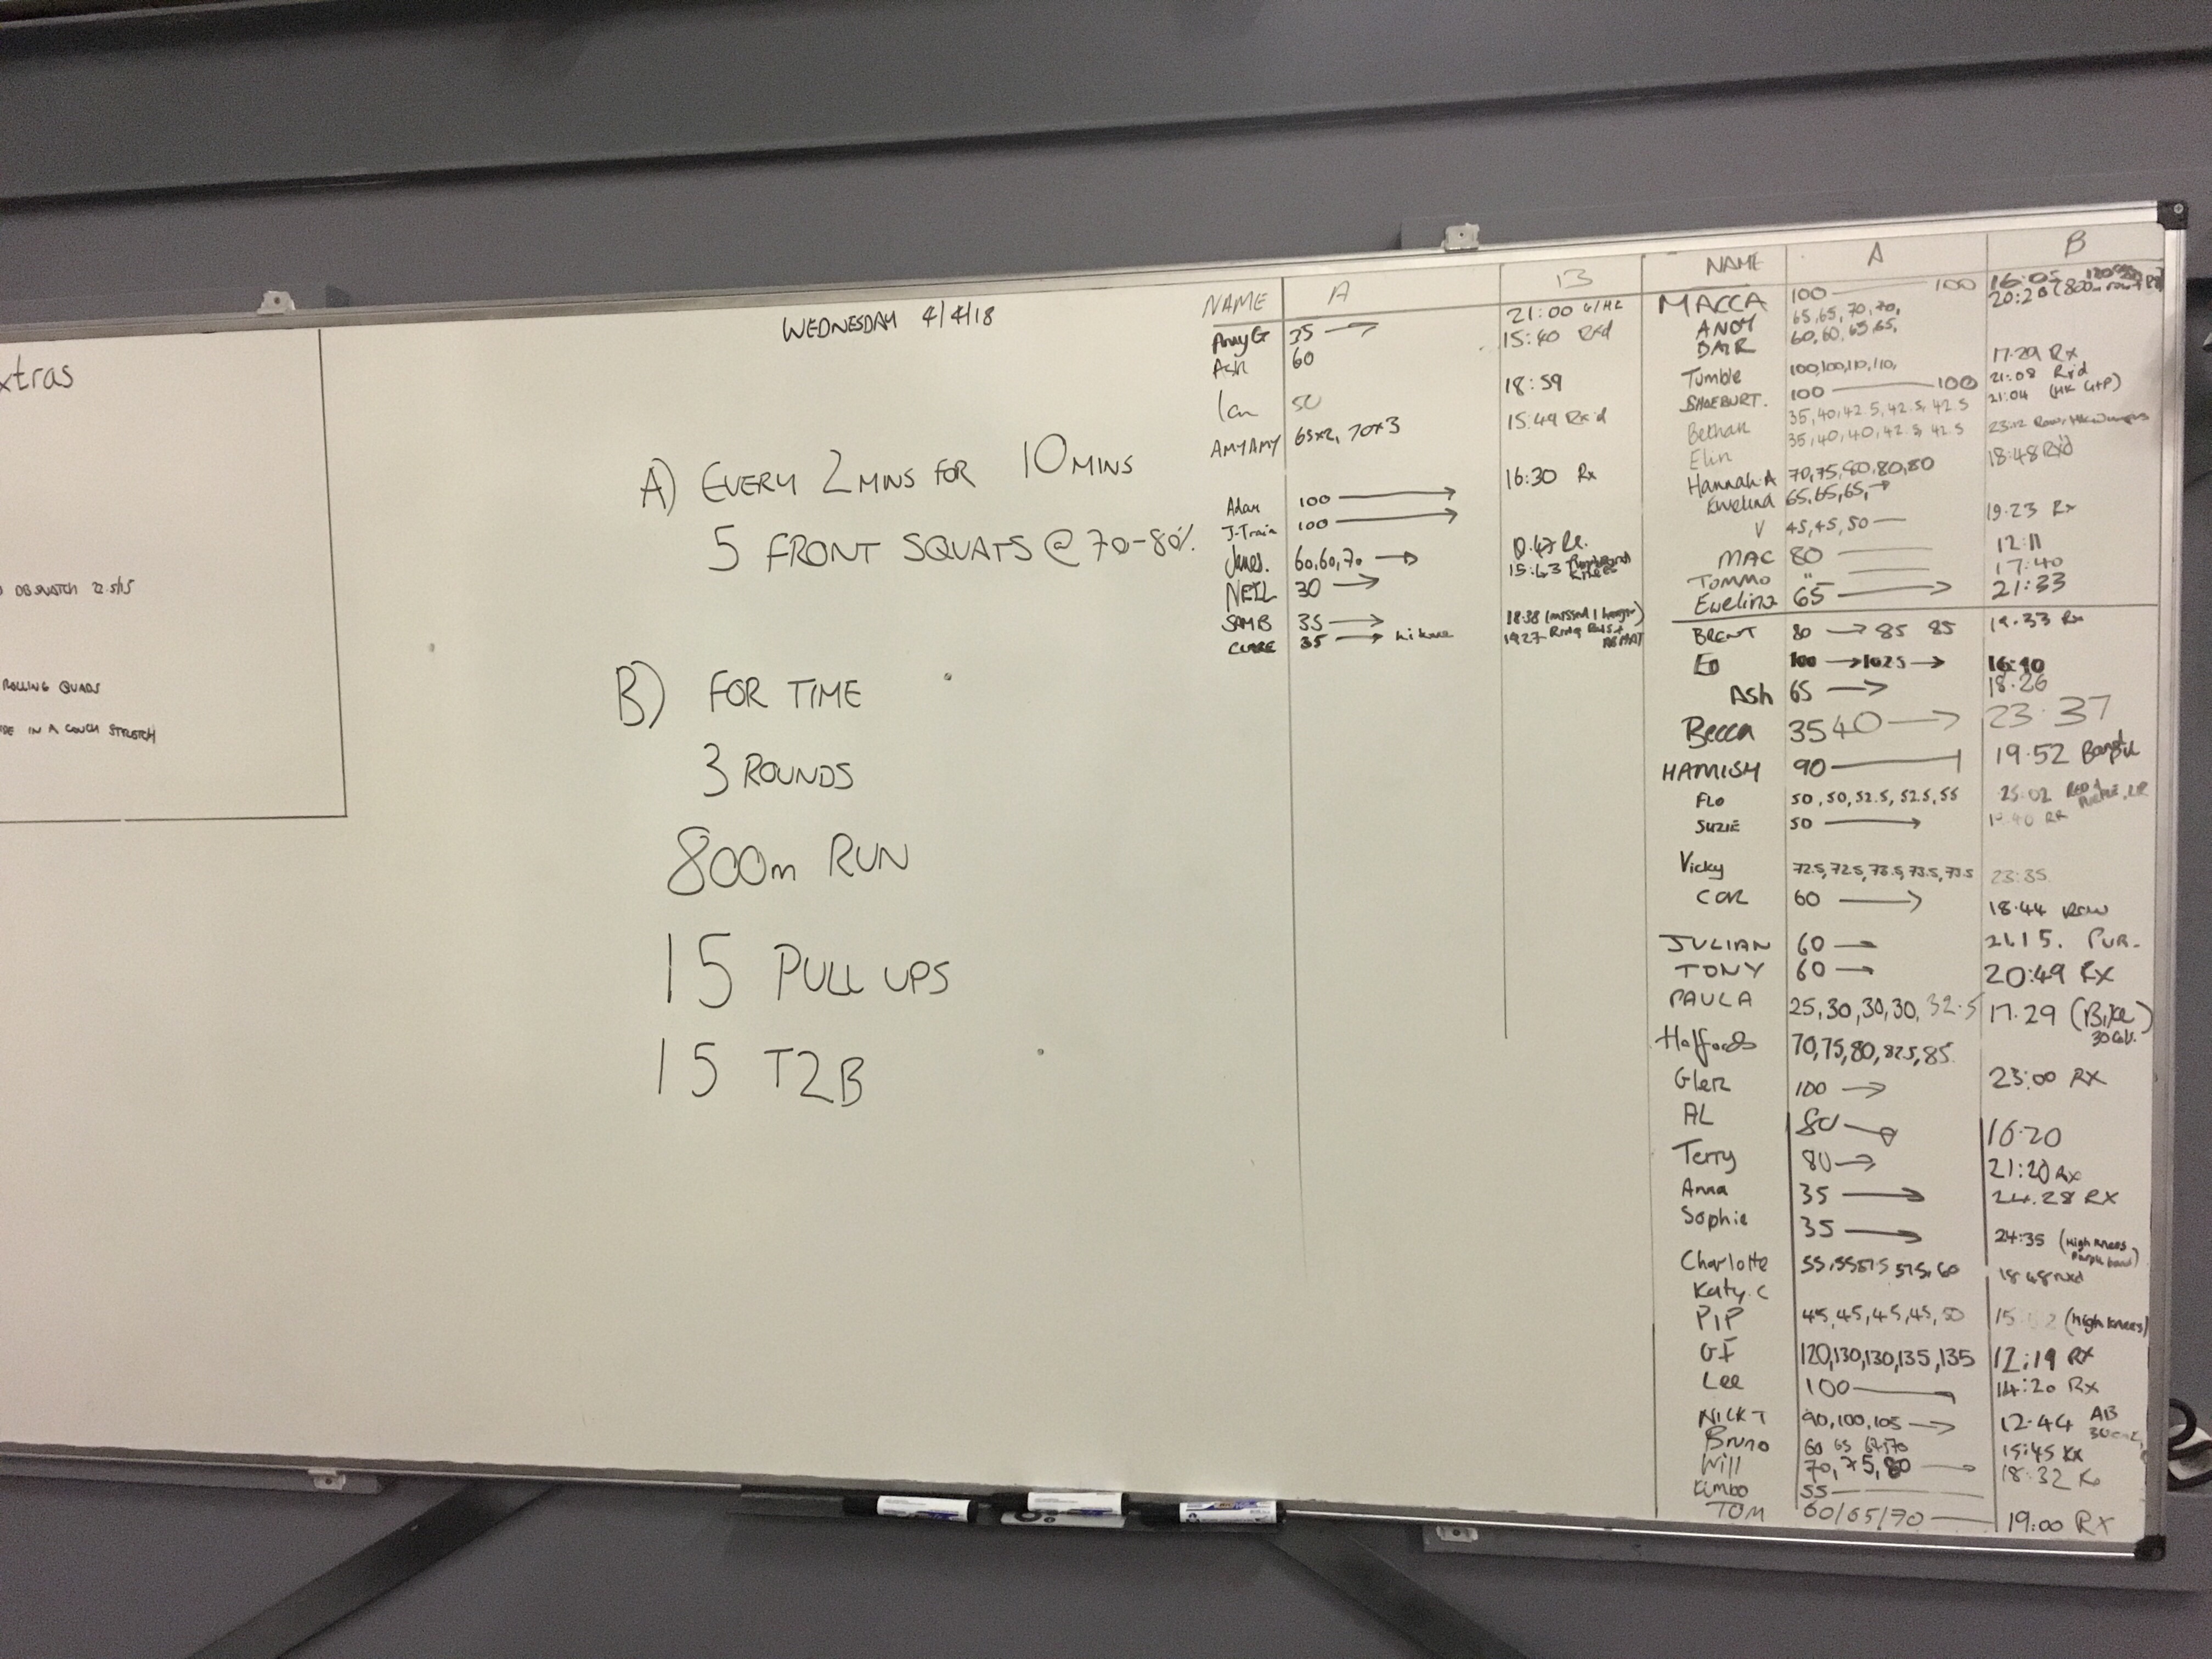 xtras
DB SNATCH 22.5/15
ROLLING QUADS
IN A COUCH STRETCH
WEDNESDAY 4/4/18
A) EVERY 2 MINS FOR 10 MINS
5 FRONT SQUATS @ 70-80%
B) FOR TIME
3 ROUNDS
800m RUN
15 PULL UPS
15 T2B
NAME A B
AmyG 35 → 21:00
Ash 60 15:40 Rxd
Ian 50 18:59
AMYAMY 65x2, 70x3 15:49 Rx'd
Adam 100 → 16:30 Rx
J-Train 100 →
James. 60,60,70 →
NEIL 30 →
SAM B 35 → 18:38 (missed 1 hanger)
CLARE 35 → 19.27 Ring Rows + ABMAT
NAME A B
MACCA 100 — 100 16:05
ANDY 65,65,70,70, 20:20
60,60,65,65,
Tumble 100,100,110,110, 17.29 Rx
SHOEBURT. 100 — 100 21:08 Rx'd
Bethan 35,40,42.5,42.5,42.5 21:04
Elin 35,40,40,42.5,42.5
Hannah.A 70,75,80,80,80 18:48 Rx'd
Ewelina 65,65,65,→
V 45,45,50 — 19.23 Rx
MAC 80 — 12:11
TOMMO " — 17:40
Ewelina 65 → 21:33
BRENT 80 → 85 85 19.33 Rx
ED 100 → 102.5 → 16:10
Ash 65 → 18.26
Becca 35 40 → 23:37
HAMISH 90 — 19.52
FLO 50,50,52.5,52.5,55 25:02
SUZIE 50 →
Vicky 72.5,72.5,73.5,73.5,73.5 23:35
COR 60 → 18.44 ROW
JULIAN 60 → 21.15. PUR.
TONY 60 → 20:49 RX
PAULA 25,30,30,30,32.5 17.29 (Bike) 30 Cals.
Halfords 70,75,80,82.5,85.
Glen 100 → 23:00 RX
AL 80 → 16.20
Terry 80 → 21:20 Rx
Anna 35 → 24.28 RX
Sophie 35 → 24:35 (High knees Purple band)
Charlotte 55,55 57.5 57.5,60 18:48 rxd
Katy.C
PIP 45,45,45,45,50 (High knees)
GF 120,130,130,135,135 12:19 RX
Lee 100 — 14:20 Rx
NICK T 90,100,105 → 12.44 AB
Bruno 60 65 15:45 RX
Will 70,75,80 → 18:32
Kimbo 55 —
TOM 60/65/70 — 19:00 RX